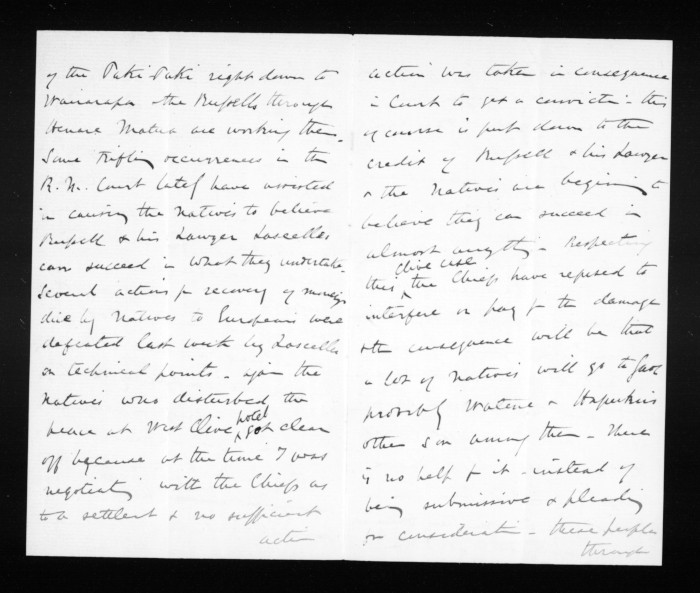 of the Taki-Taki right down to
Wairarapa - the Russells through
Henare Matua are working them.
Some trifling occurrences in the
R.M. Court lately have assisted
in causing the natives to believe
Russell & his Lawyer Lascelles
can succeed in what they undertake.
Several actions for recovery of moneys
due by Natives to Europeans were
defeated last week by Lascelles
on technical points - again the
Natives who disturbed the
peace at West Clive hotel got clear
off because at the time I was
negotiating with the Chiefs as
to a settlement & no sufficient
action
action was taken in consequence
in Court to get a conviction - this
of course is put down to the
credit of Russell & his Lawyer
& the Natives are beginning to
believe they can succeed in
almost anything - Respecting
this Clive case the Chiefs have refused to
interfere or pay for the damage
& the consequence will be that
a lot of Natives will go to Gaol
probably Watene & Hapuku's
other son among them - There
is no help for it - instead of
being submissive & pleading
for consideration - these people
through